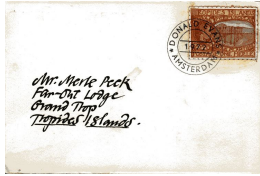 DONALD EVANS
AMSTERDAM
Mr. Merle Peck
Far-Out Lodge
Grand Trop
Tropides Islands.